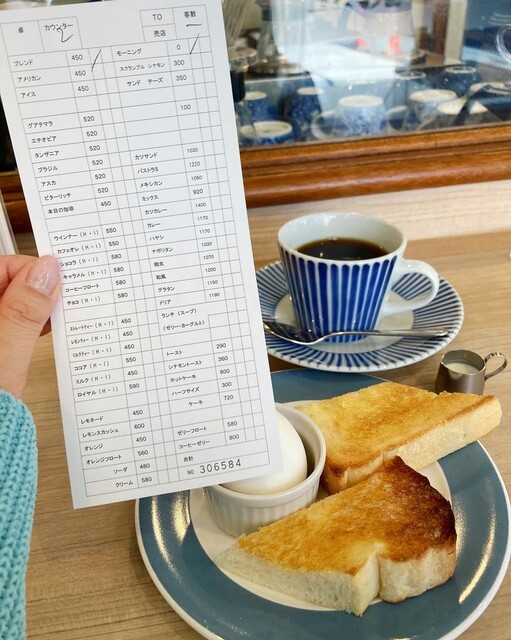 卓 カウンター 2 TO 売店 客数 一
ブレンド 450
アメリカン 450
アイス 450
グアテマラ 520
エチオピア 520
タンザニア 520
ブラジル 520
アスカ 520
ビターリッチ 520
本日の珈琲 450
ウインナー (H・I) 550
カフェオレ (H・I) 550
ショコラ (H・I) 580
キャラメル (H・I) 580
コーヒーフロート 580
チョコ (H・I) 580
ストレートティー (H・I) 450
レモンティー (H・I) 450
ミルクティー (H・I) 450
ココア (H・I) 550
ミルク (H・I) 450
ロイヤル (H・I) 590
レモネード 450
レモンスカッシュ 600
オレンジ 450
オレンジフロート 560
ソーダ 480
クリーム 580
モーニング 0
スクランブル シナモン 300
サンド チーズ 350
100
カツサンド 1030
パストラミ 1220
メキシカン 1060
ミックス 920
カツカレー 1400
カレー 1170
ハヤシ 1170
ナポリタン 1030
明太 1070
和風 1200
グラタン 1150
ドリア 1190
ランチ (スープ)
(ゼリーヨーグルト)
トースト 290
シナモントースト 360
ホットケーキ 800
ハーフサイズ 300
ケーキ 720
ゼリーフロート 580
コーヒーゼリー 800
合計
NO 306584